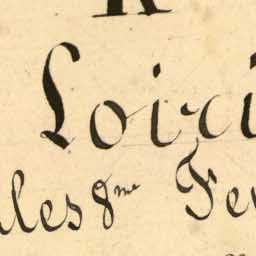 R
Loici
les 8me Fe